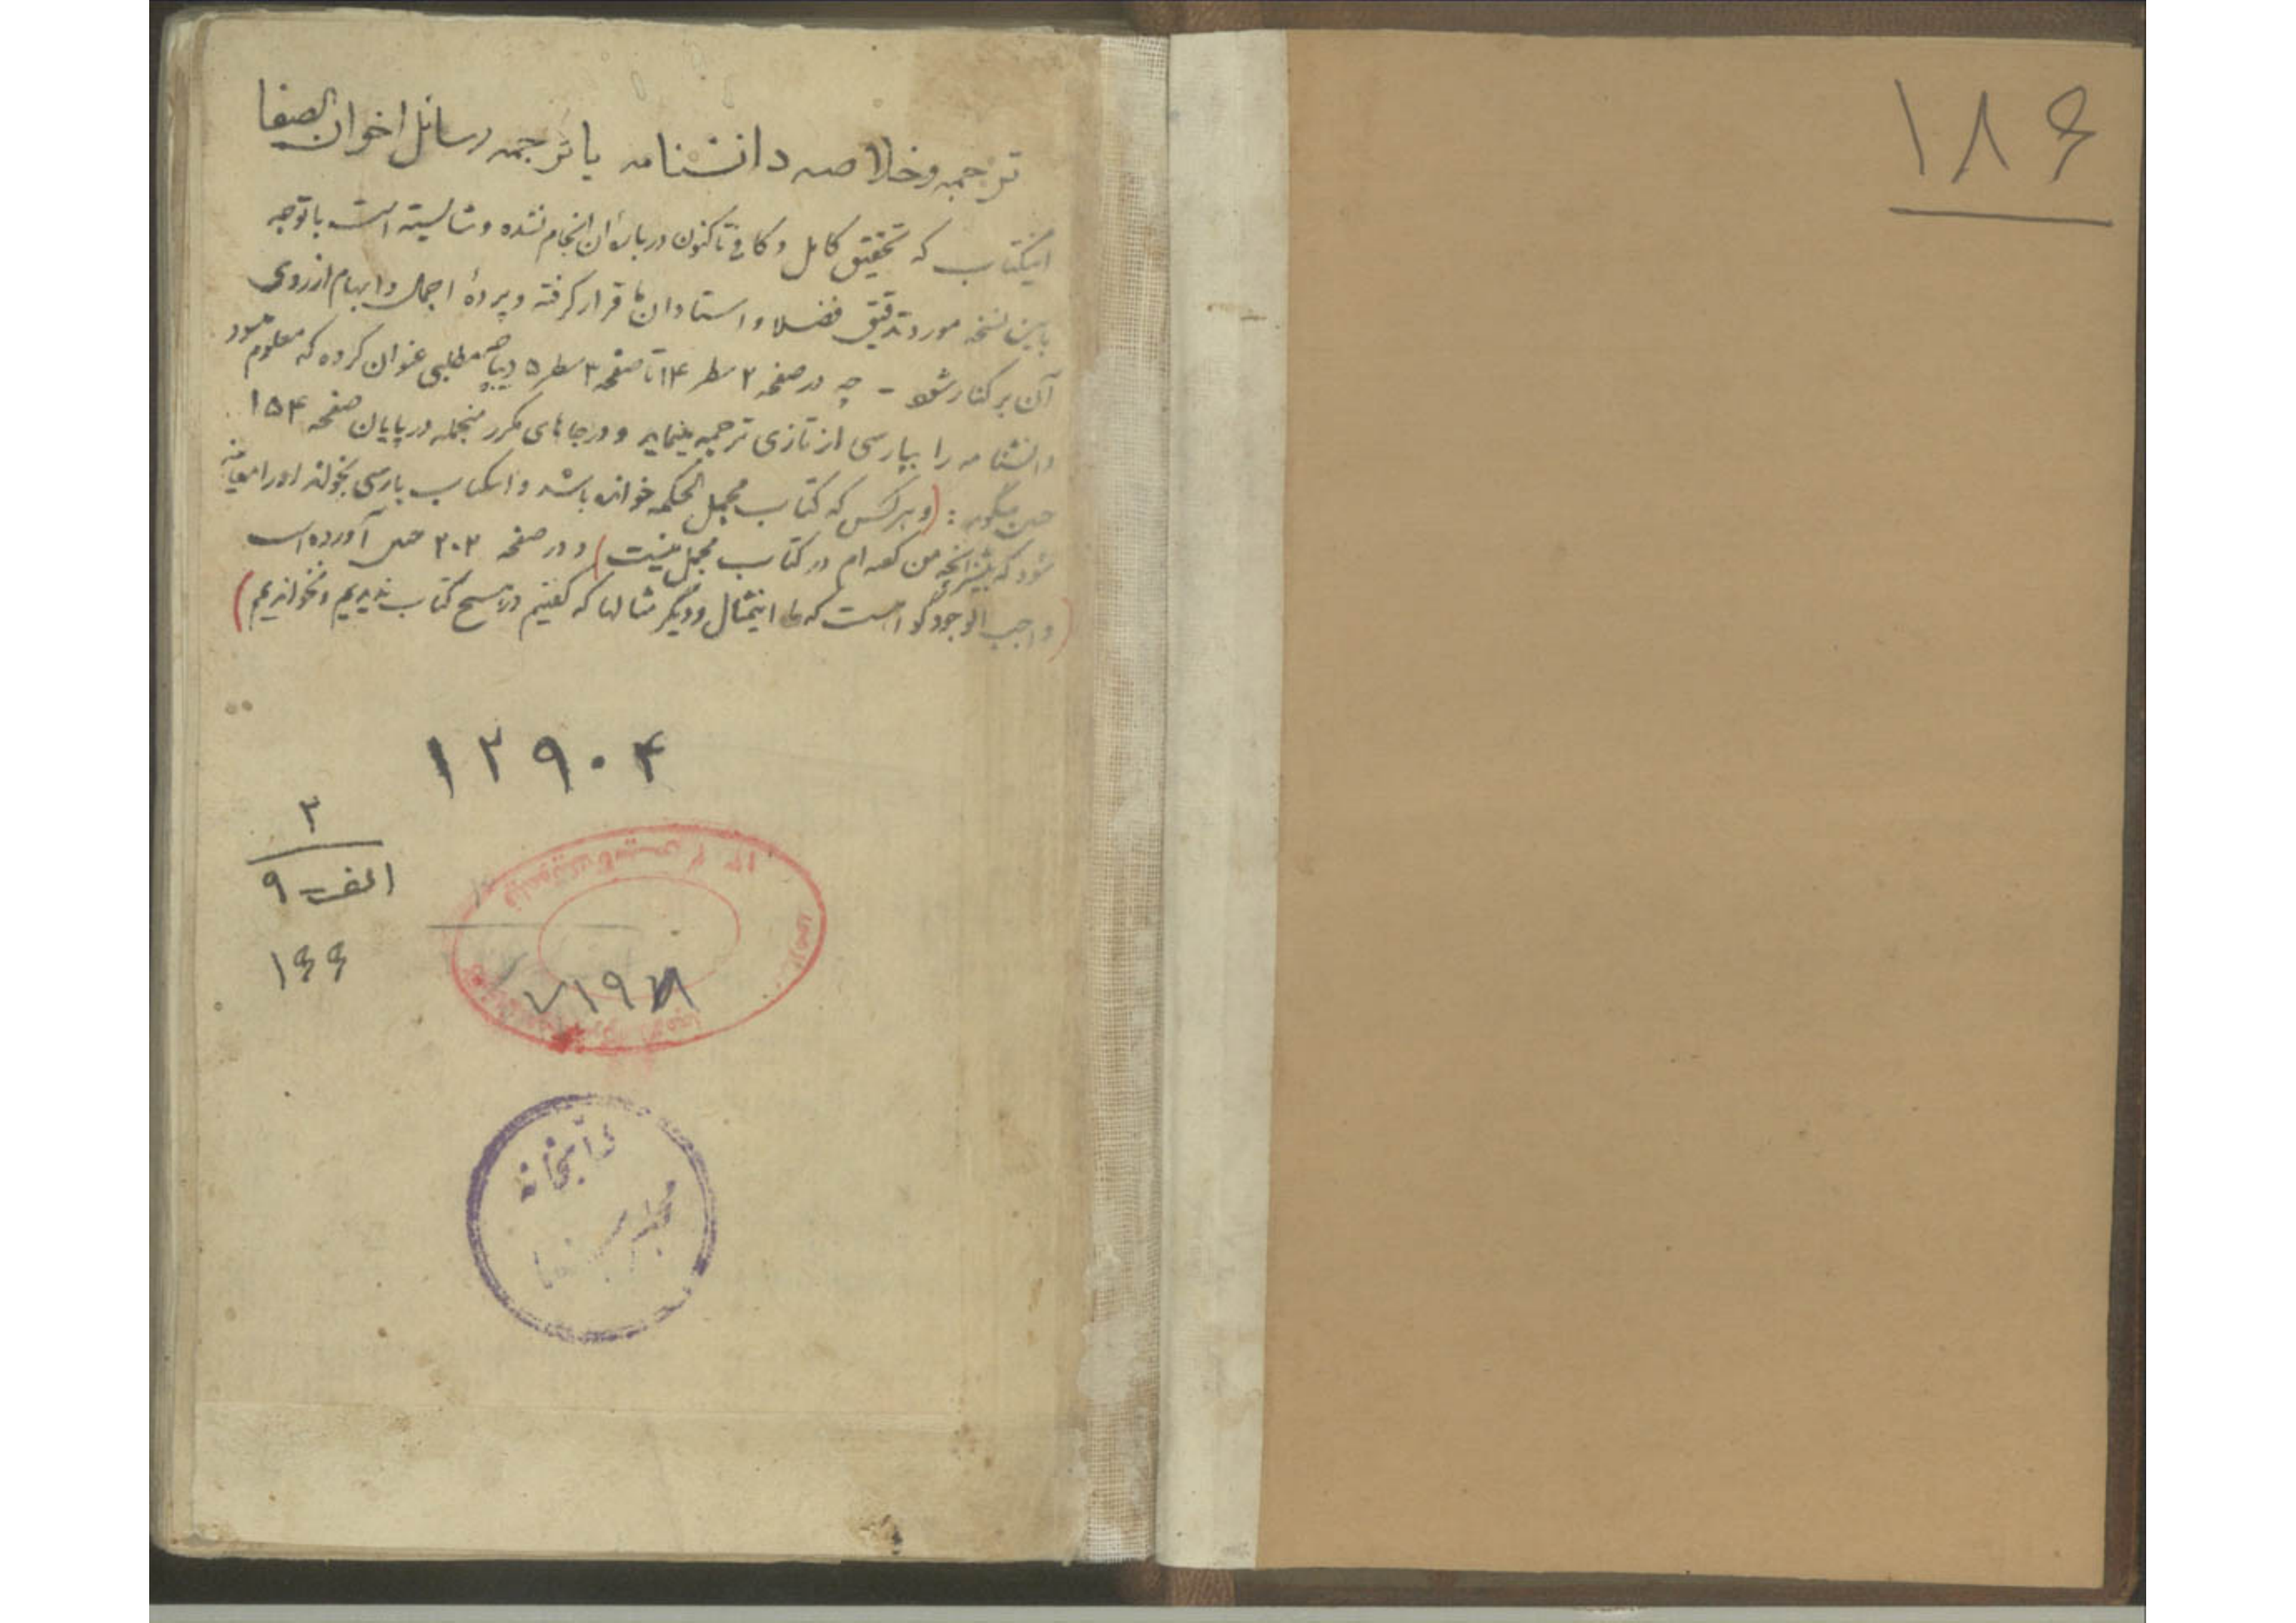 ۱۸۶
ترجمه و خلاصه دانشنامه یا ترجمه رسائل اخوان الصفا
اینکتاب که تحقیق کامل و کافی تاکنون درباره آن انجام نشده و شایسته است باتوجه
باین نسخه مورد تدقیق فضلا و استادان قرار گرفته و پردهٔ اجمال و ابهام از روی
آن برکنار شود - چه در صفحه ۲ سطر ۱۴ تا صفحه ۳ سطر ۵ دیباچه مطلبی عنوان کرده که معلوم میشود
دانشنامه را بپارسی از تازی ترجمه مینماید و در جاهای مکرر منجمله در پایان صفحه ۱۵۴
چنین میگوید : (و هر کس که کتاب مجمل الحکمه خوانده باشد و این کتاب پارسی بخواند او را معاینه
شود که بیشتر آنچه من گفته ام در کتاب مجمل نیست) و در صفحه ۲۰۲ چنین آورده است
(واجب الوجود گواست که ما اینمثال و دیگر مثالها که گفتیم در هیچ کتاب ندیدیم و نخواندیم)
۱۲۹۰۴
۳
الف ۹
۱۶۶
۷۱۹۷۸
کتابخانه
مجلس